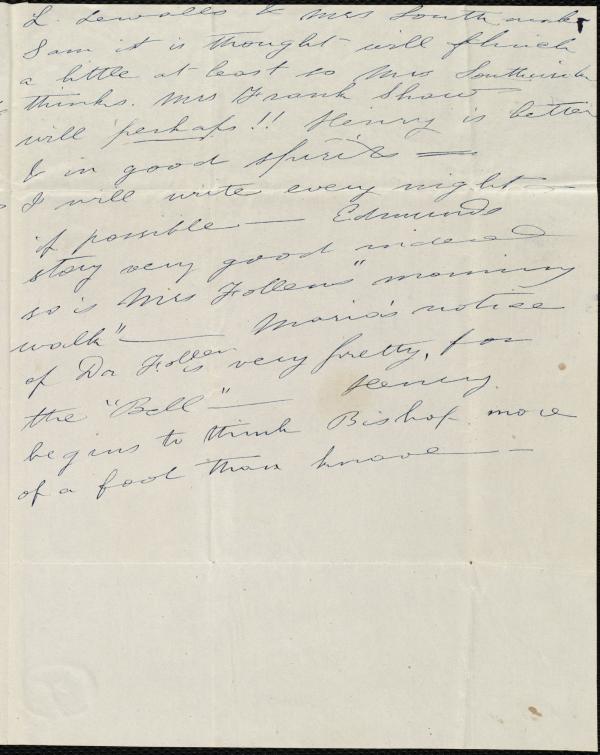 L. Sewalls & Mrs South
Sam it is thought will flinch
a little at least so Mrs Southwick
thinks. Mrs Frank Shaw
will perhaps!! Henry is better
& in good spirits —
I will write every night —
if possible — Edmunds
story very good indeed
so is Mrs Follens "morning
walk" — Maria's notice
of Dr Follen is very pretty, for
the "Bell" — Henry
begins to think Bishop more
of a fool than knave —